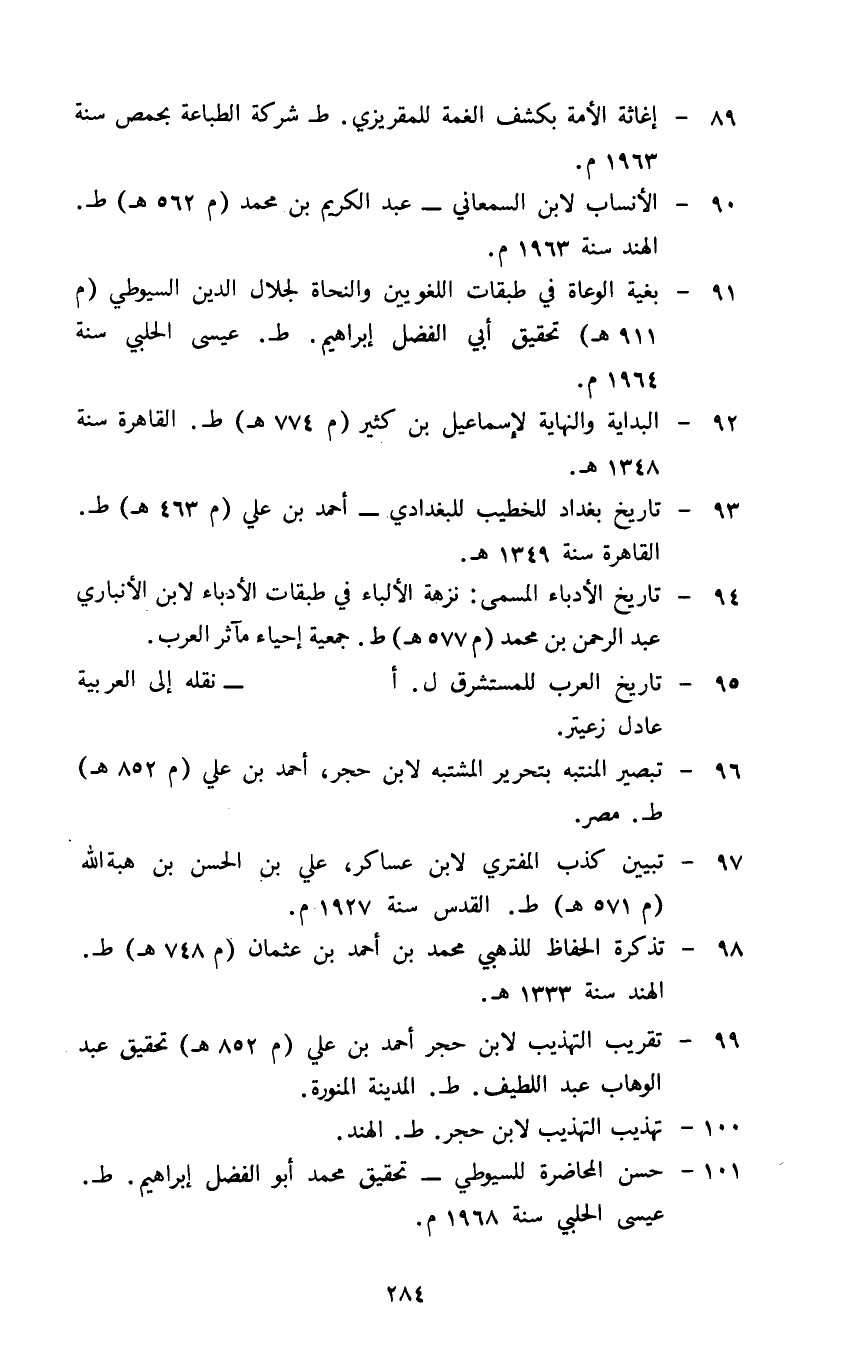 ٨٩ - إغاثة الأمة بكشف الغمة للمقريزي. ط شركة الطباعة بحمص سنة
١٩٦٣ م.
٩٠ - الأنساب لابن السمعاني – عبد الكريم بن محمد (م ٥٦٢ هـ) ط.
الهند سنة ١٩٦٣ م.
٩١ - بغية الوعاة في طبقات اللغويين والنحاة لجلال الدين السيوطي (م
٩١١ هـ) تحقيق أبي الفضل إبراهيم. ط. عيسى الحلبي سنة
١٩٦٤ م.
٩٢ - البداية والنهاية لإسماعيل بن كثير (م ٧٧٤ هـ) ط. القاهرة سنة
١٣٤٨ هـ.
٩٣ - تاريخ بغداد للخطيب للبغدادي – أحمد بن علي (م ٤٦٣ هـ) ط.
القاهرة سنة ١٣٤٩ هـ.
٩٤ - تاريخ الأدباء المسمى: نزهة الألباء في طبقات الأدباء لابن الأنباري
عبد الرحمن بن محمد (م ٥٧٧ هـ) ط. جمعية إحياء مآثر العرب.
٩٥ - تاريخ العرب للمستشرق ل. أ – نقله إلى العربية
عادل زعيتر.
٩٦ - تبصير المنتبه بتحرير المشتبه لابن حجر، أحمد بن علي (م ٨٥٢ هـ)
ط. مصر.
٩٧ - تبيين كذب المفتري لابن عساكر، علي بن الحسن بن هبةالله
(م ٥٧١ هـ) ط. القدس سنة ١٩٢٧ م.
٩٨ - تذكرة الحفاظ للذهبي محمد بن أحمد بن عثمان (م ٧٤٨ هـ) ط.
الهند سنة ١٣٣٣ هـ.
٩٩ - تقريب التهذيب لابن حجر أحمد بن علي (م ٨٥٢ هـ) تحقيق عبد
الوهاب عبد اللطيف. ط. المدينة المنورة.
١٠٠ - تهذيب التهذيب لابن حجر. ط. الهند.
١٠١ - حسن المحاضرة للسيوطي – تحقيق محمد أبو الفضل إبراهيم. ط.
عيسى الحلبي سنة ١٩٦٨ م.
٢٨٤